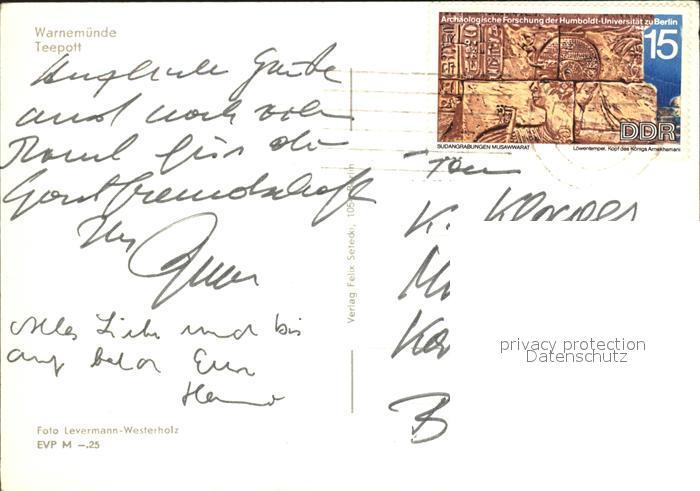 Warnemünde
Teepott
Herzliche Grüße
und noch vielen
Dank für die
Gastfreundschaft
Ihr
Alles Liebe und bis
auf bald Eure
Foto Levermann-Westerholz
EVP M –.25
Verlag Felix Setecki, 105
Archäologische Forschung der Humboldt-Universität zu Berlin
15
DDR
SUDANGRABUNGEN MUSAWWARAT
Löwentempel, Kopf des Königs Arnekhamani
K.
K
B
privacy protection
Datenschutz